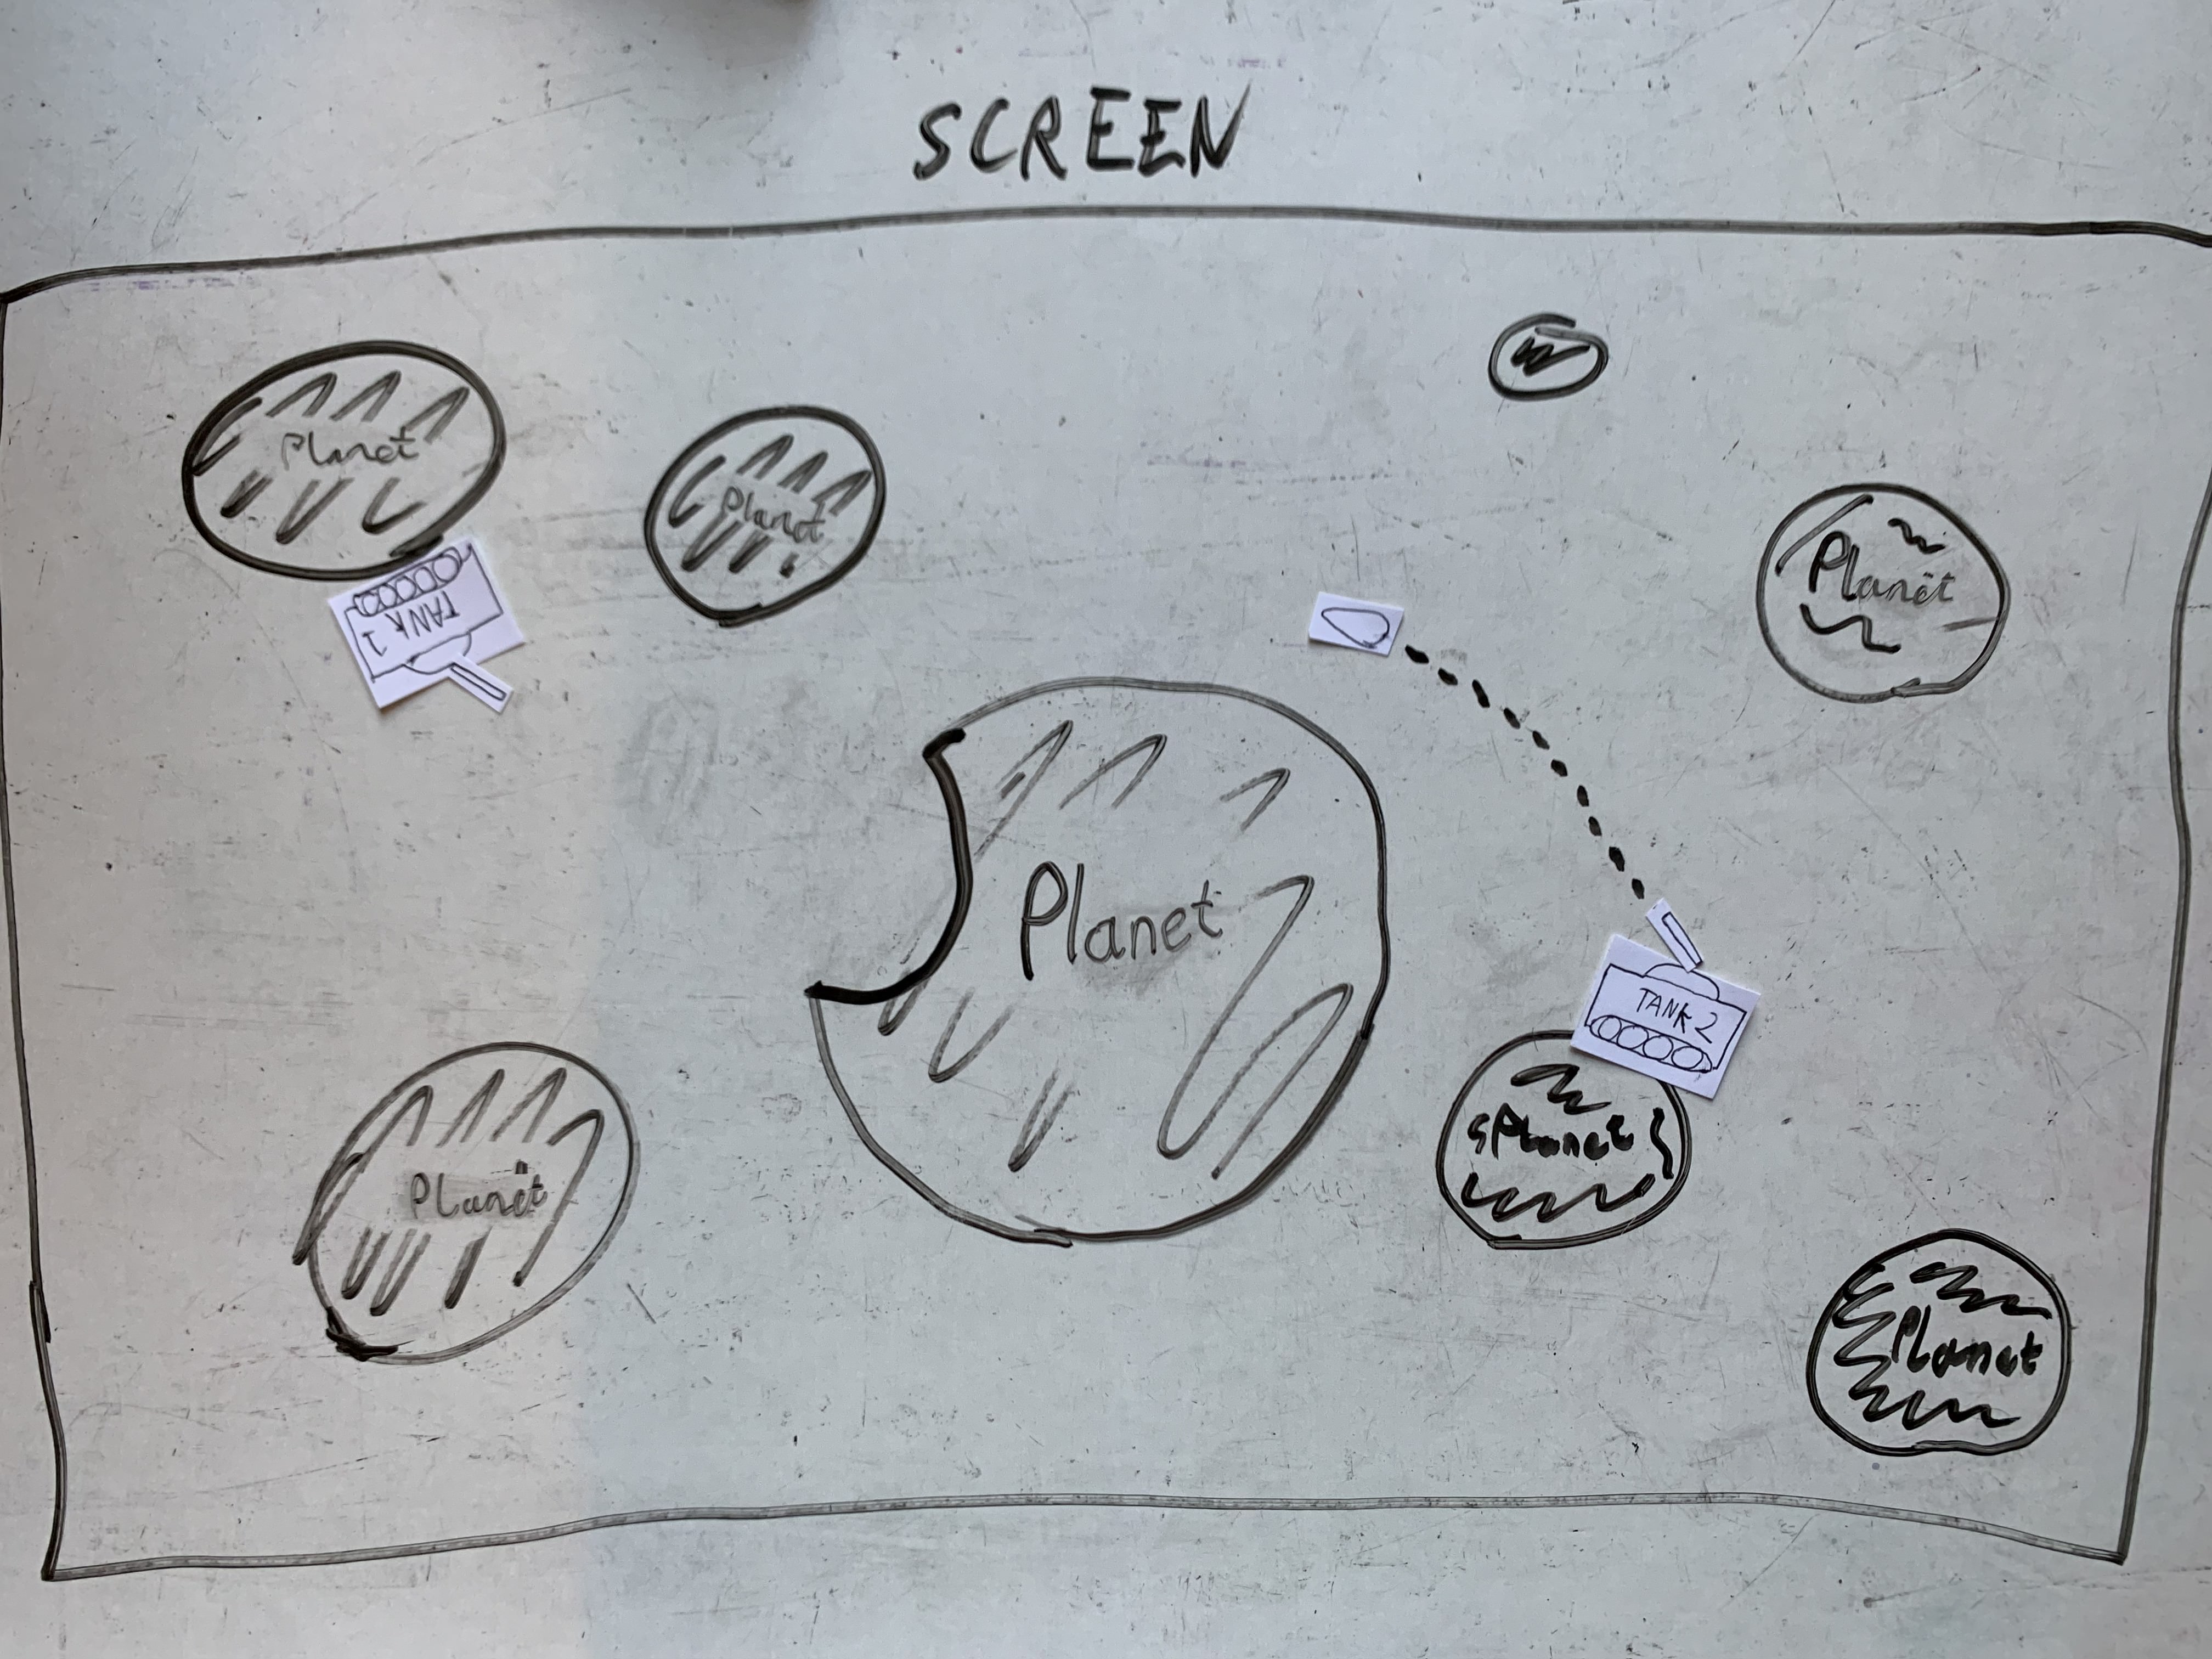 SCREEN
Planet
Planet
Planet
TANK
1
Planet
TANK 2
Planet
Planet
Planet